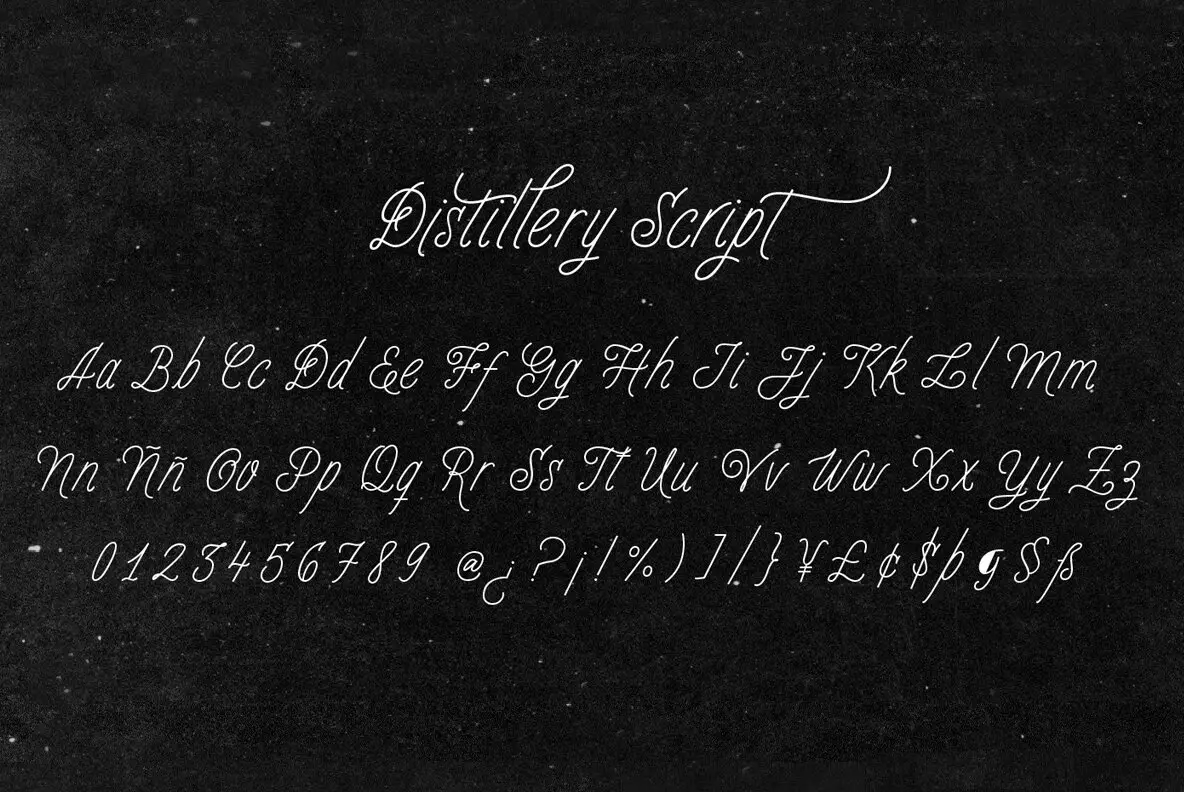 Distillery Script
Aa Bb Cc Dd Ee Ff Gg Hh Ii Jj Kk Ll Mm
Nn Ññ Oo Pp Qq Rr Ss Tt Uu Vv Ww Xx Yy Zz
0123456789 @¿?¡!%)]/}¥£¢$þ ß